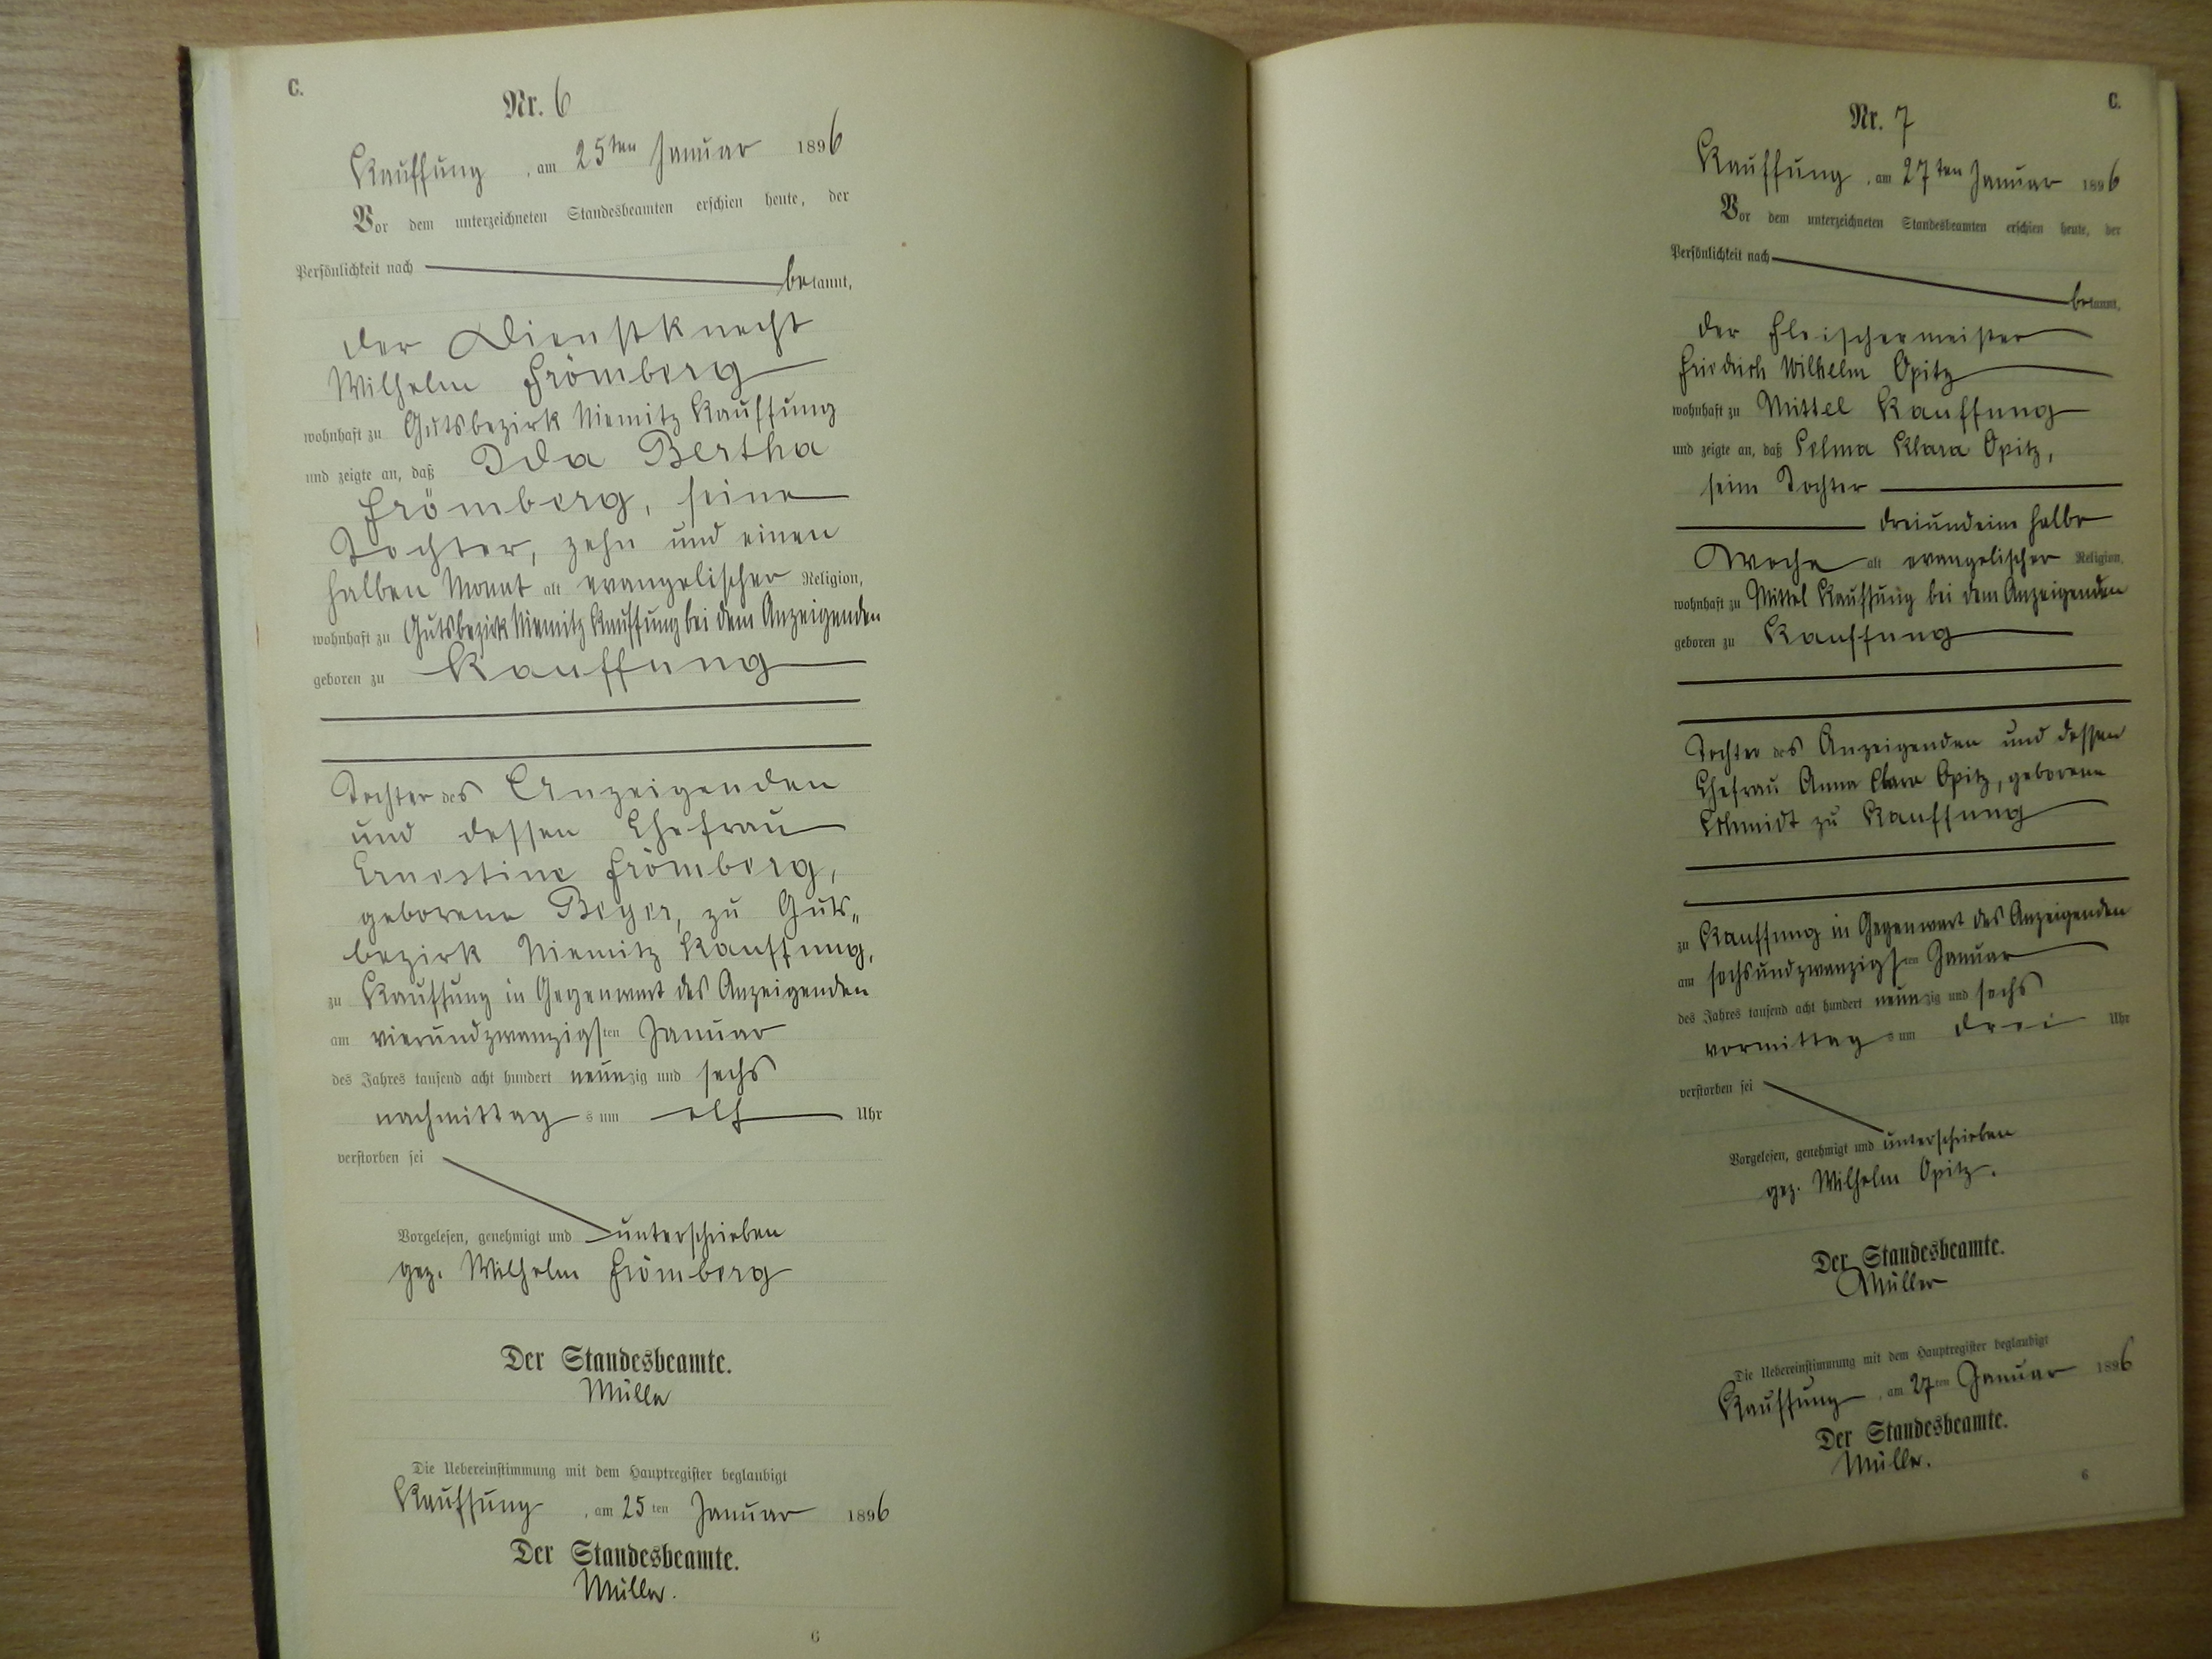 C.
Nr. 6
Kauffung, am 25ten Januar 1896
Vor dem unterzeichneten Standesbeamten erschien heute, der
Persönlichkeit nach
bekannt,
der Dienstknecht
Wilhelm Frömberg
wohnhaft zu Gutsbezirk Niemitz Kauffung
und zeigte an, daß Ida Bertha
Frömberg, seine
Tochter, zehn und einen
halben Monat alt evangelischer Religion,
wohnhaft zu Gutsbezirk Niemitz Kauffung bei dem Anzeigenden
geboren zu Kauffung
Tochter des Anzeigenden
und dessen Ehefrau
Ernestine Frömberg,
geborene Beyer, zu Guts„
bezirk Niemitz Kauffung,
zu Kauffung in Gegenwart des Anzeigenden
am vierundzwanzigsten Januar
des Jahres tausend acht hundert neunzig und sechs
nachmittags um elf Uhr
verstorben sei
Vorgelesen, genehmigt und unterschrieben
gez. Wilhelm Frömberg
Der Standesbeamte.
Müller
Die Uebereinstimmung mit dem Hauptregister beglaubigt
Kauffung, am 25ten Januar 1896
Der Standesbeamte.
Müller.
6
C.
Nr. 7
Kauffung, am 27ten Januar 1896
Vor dem unterzeichneten Standesbeamten erschien heute, der
Persönlichkeit nach
bekannt,
der Fleischermeister
Friedrich Wilhelm Opitz
wohnhaft zu Mittel Kauffung
und zeigte an, daß Selma Klara Opitz,
seine Tochter
dreiundeine halbe
Woche alt evangelischer Religion,
wohnhaft zu Mittel Kauffung bei dem Anzeigenden
geboren zu Kauffung
Tochter des Anzeigenden und dessen
Ehefrau Anna Clara Opitz, geborene
Schmidt zu Kauffung
zu Kauffung in Gegenwart des Anzeigenden
am sechsundzwanzigsten Januar
des Jahres tausend acht hundert neunzig und sechs
vormittags um drei Uhr
verstorben sei
Vorgelesen, genehmigt und unterschrieben
gez. Wilhelm Opitz.
Der Standesbeamte.
Müller
Die Uebereinstimmung mit dem Hauptregister beglaubigt
Kauffung, am 27ten Januar 1896
Der Standesbeamte.
Müller.
6